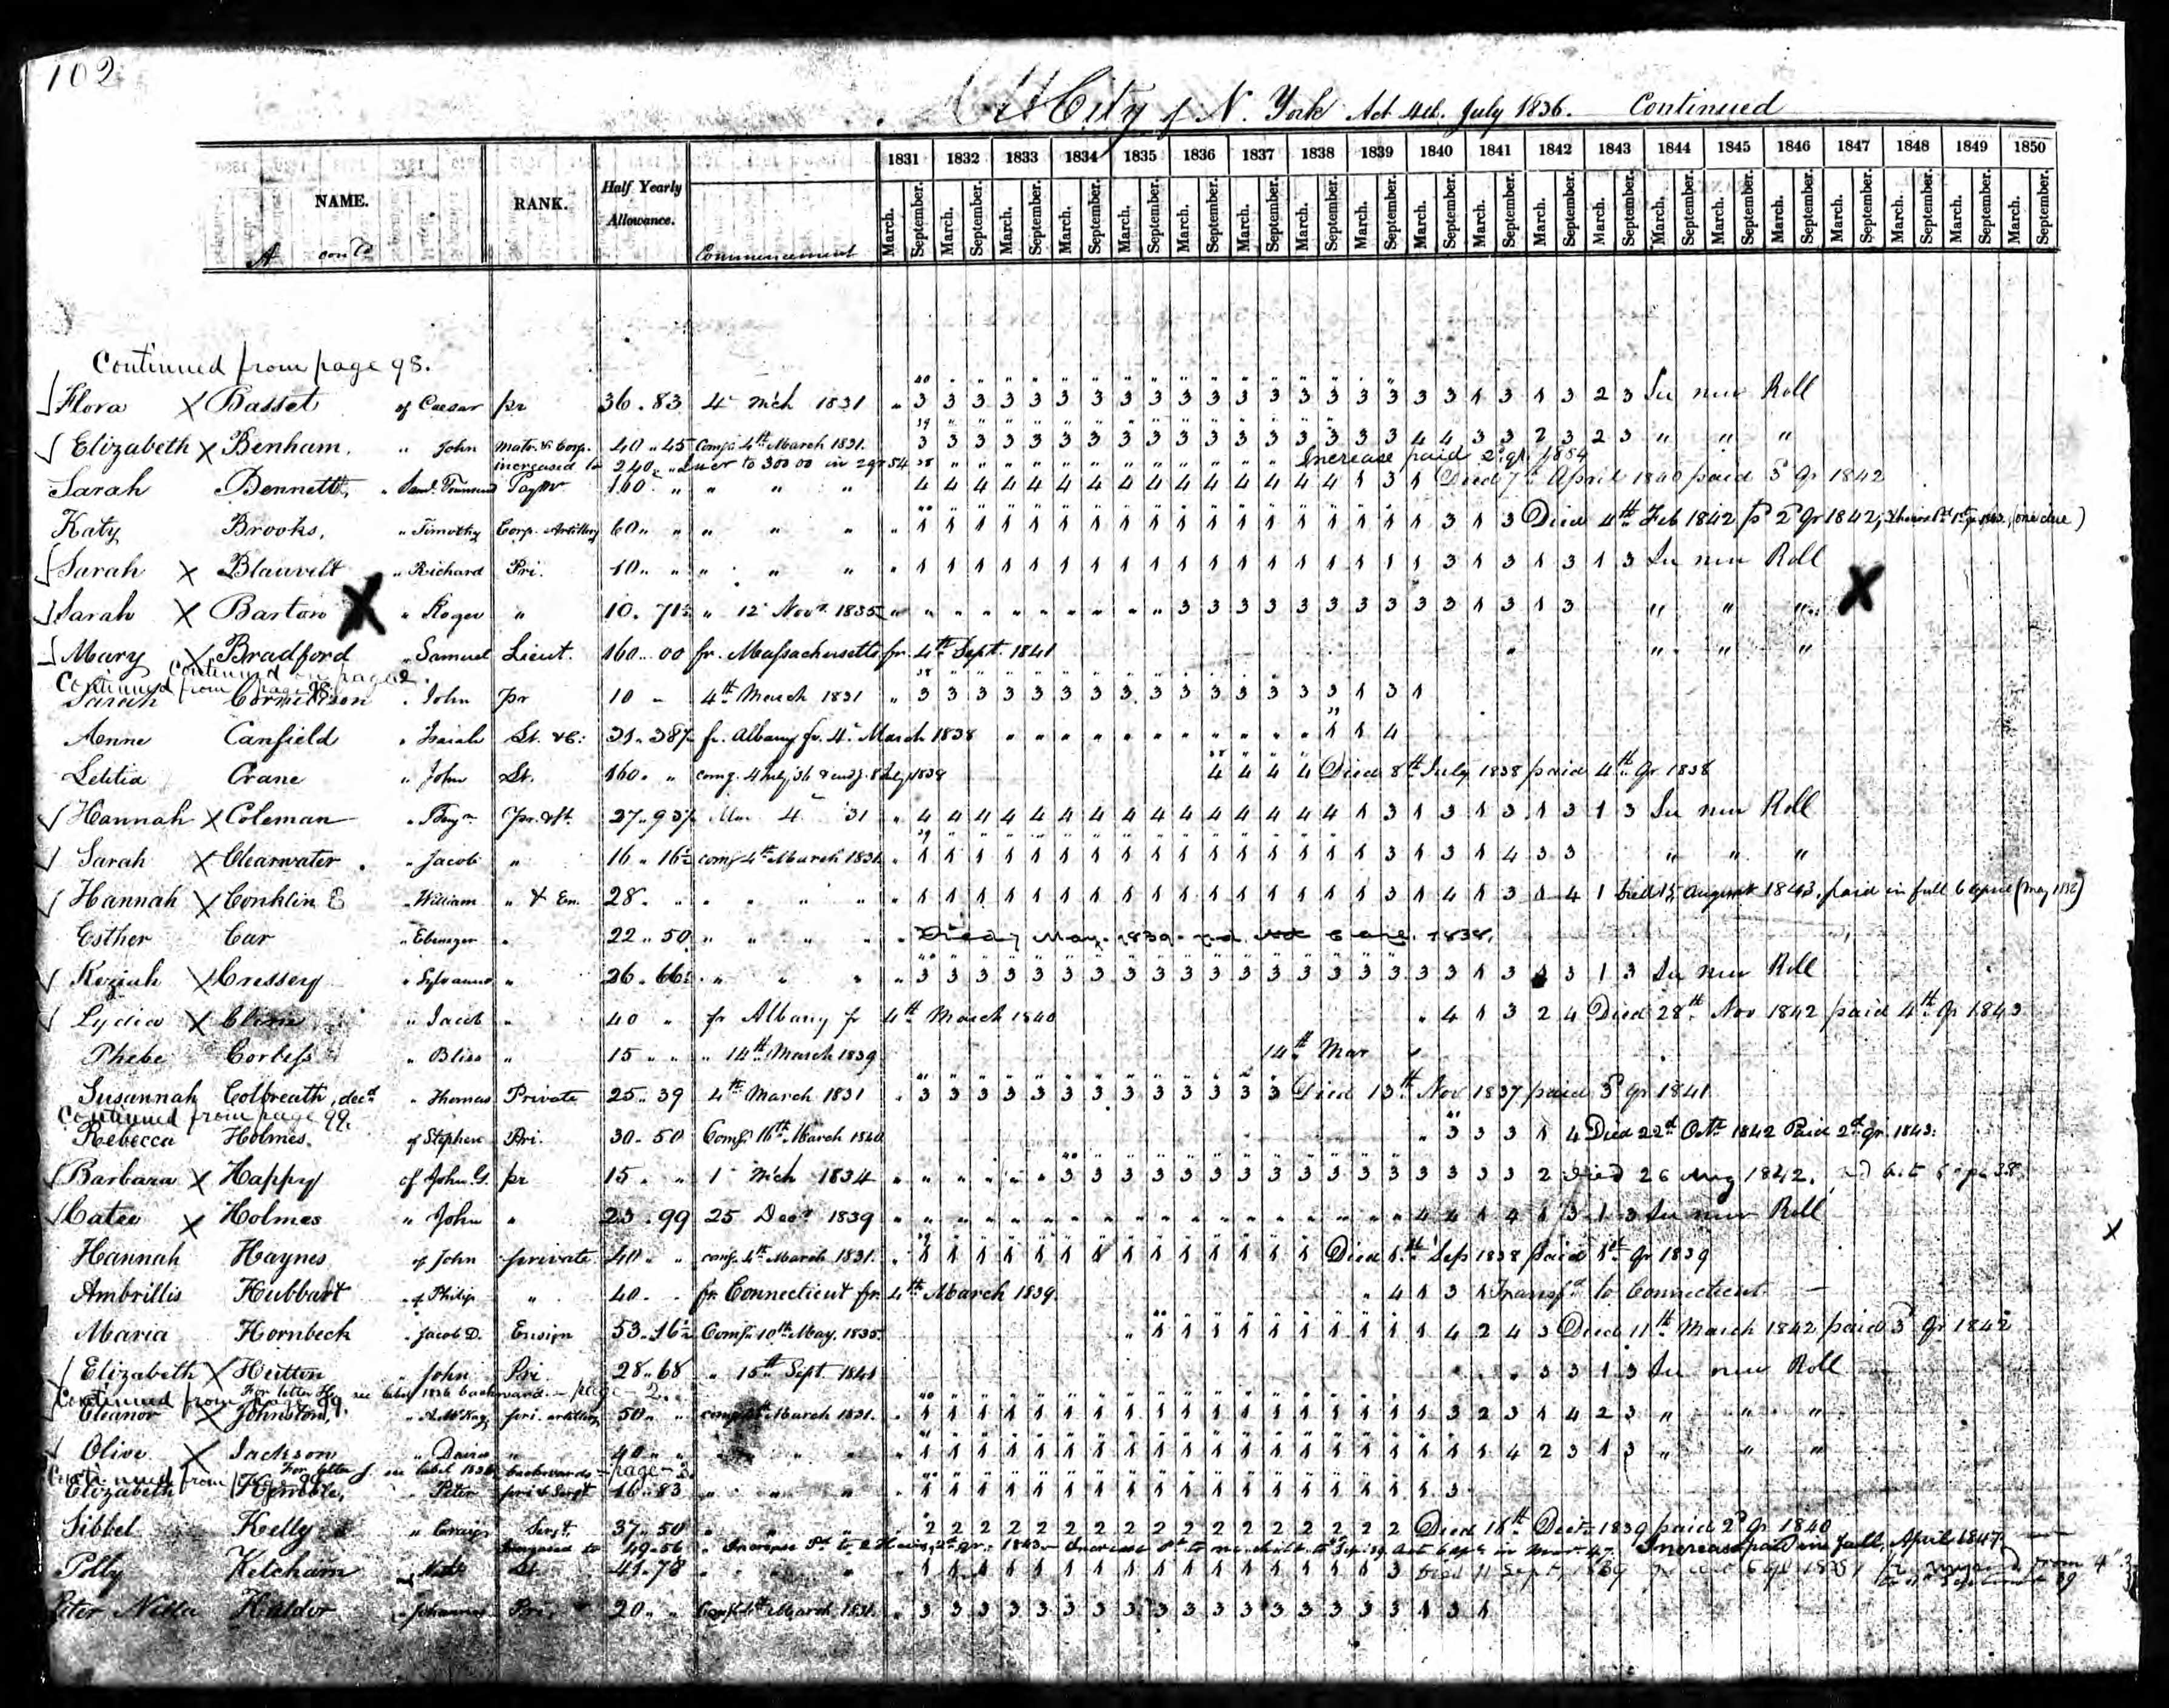 102
City of N. York Act 4th July 1836. Continued
NAME. RANK. Half Yearly Allowance. Commencement
A cont'd
1831 1832 1833 1834 1835 1836 1837 1838 1839 1840 1841 1842 1843 1844 1845 1846 1847 1848 1849 1850
March. September. March. September. March. September. March. September. March. September. March. September. March. September. March. September. March. September. March. September. March. September. March. September. March. September. March. September. March. September. March. September. March. September. March. September. March. September. March. September.
Continued from page 98.
Flora X Basset of Caesar pr 36.83 4 Mch 1831 " 3 3 3 3 3 3 3 3 3 3 3 3 3 3 3 3 3 3 3 1 3 1 3 2 3 See new Roll
Elizabeth X Benham. " John Matr. & Corp. 40 " 45 Comg. 4th March 1831. 3 3 3 3 3 3 3 3 3 3 3 3 3 3 3 3 3 4 4 3 3 2 3 2 3 " " "
increased to 240. Increase paid 2 qr. 1854
Sarah Bennett, " Saml. Townsend Paymr 160 " " " " 4 4 4 4 4 4 4 4 4 4 4 4 4 4 4 1 3 1 Died 7th April 1840 paid 3d qr 1842
Katy Brooks, " Timothy Corp. Artillery 60 " " " " " 1 1 1 1 1 1 1 1 1 1 1 1 1 1 1 1 1 1 3 1 3 Died 4th Feb 1842 pd 2d qr 1842, (one due)
Sarah X Blauvelt " Richard Pri. 40 " " " " " " 1 1 1 1 1 1 1 1 1 1 1 1 1 1 1 1 1 1 3 1 3 1 3 1 3 See new Roll
Sarah X Barton X " Roger " 10. 71 " 12 Nov. 1835 3 3 3 3 3 3 3 3 3 3 1 3 1 3 " " " X
Mary X Bradford " Samuel Lieut. 160 " 00 fr. Massachusetts fr. 4th Sept. 1841 " " "
Continued on page 2.
Continued from page 98.
Sarah Cornelison " John pr 10 - 4th March 1831 " 3 3 3 3 3 3 3 3 3 3 3 3 3 3 3 1 3 1
Anne Canfield " Isaiah 31.387 fr. Albany fr. 4 March 1838 1 1 4
Letitia Crane " John Lt. 160. " comg. 4 July 36 & endg. 8 July 1838 4 4 4 4 Died 8th July 1838 paid 4th qr 1838
Hannah X Coleman " Benjn Pr. & St. 27 " 937 Mar 4 31 " 4 4 4 4 4 4 4 4 4 4 4 4 4 4 4 1 3 1 3 1 3 1 3 1 3 See new Roll
Sarah X Clearwater " Jacob " 16 " 16½ comg 4th March 1831 " 1 1 1 1 1 1 1 1 1 1 1 1 1 1 1 1 3 1 3 1 4 3 3 " " "
Hannah X Conklin " William " & En. 28 " " " " " " " 1 1 1 1 1 1 1 1 1 1 1 1 1 1 1 1 3 1 4 1 3 1 4 1 Died 15 August 1843, paid in full 6 April (May 1852)
Esther Car " Ebenezer " 22 " 50 " " " " " Died 7 May. 1839 1838.
Keziah X Cressey " Sylvanus " 26.66 " " " " 3 3 3 3 3 3 3 3 3 3 3 3 3 3 3 3 3 3 3 1 3 1 3 1 3 See new Roll
Lydia X Cline " Jacob " 40 " fr Albany fr 4th March 1840 " 4 1 3 2 4 Died 28th Nov 1842 paid 4th qr 1843
Phebe Corbess " Bliss " 15 " " " 14th March 1839 14th Mar
Susannah Colbreath, decd " Thomas Private 25.39 4th March 1831 " 3 3 3 3 3 3 3 3 3 3 3 3 3 Died 13th Nov 1837 paid 3d qr 1841
Continued from page 99.
Rebecca Holmes. of Stephen Pri. 30.50 Comg. 16th March 1840 " 3 3 3 1 4 Died 22d Octr 1842 Paid 2d qr. 1843.
Barbara X Happy of John G. pr 15 " " 1 Mch 1834 3 3 3 3 3 3 3 3 3 3 3 3 3 3 3 3 2 Died 26 Aug 1842.
Catee X Holmes " John " 23.99 25 Decr 1839 4 4 1 4 1 3 1 3 See new Roll
Hannah Haynes of John private 40 " " comg. 4th March 1831. " 1 1 1 1 1 1 1 1 1 1 1 1 1 1 Died 1st Sep 1838 paid 1st qr 1839
Ambrillis Hubbart " Philip " 40. " fr. Connecticut fr. 4th March 1839. " 4 1 3 1 Transfd to Connecticut
Maria Hornbeck " Jacob D. Ensign 53.16½ Comg. 10th May. 1835. " 1 1 1 1 1 1 1 1 1 1 4 2 4 3 Died 11th March 1842 paid 3d qr 1842
Elizabeth X Hutton " John Pri. 28.68 " 15th Sept. 1841 3 3 1 3 See new Roll
For letter H, see label 1836 backward - page - 2.
Continued from page 99.
Eleanor X Johnston, pri. artillery 50 " " comg 4th March 1831. " 1 1 1 1 1 1 1 1 1 1 1 1 1 1 1 1 1 1 3 2 3 1 4 2 3 " " "
Olive X Jackson " David " 40 " " " " " 1 1 1 1 1 1 1 1 1 1 1 1 1 1 1 1 1 1 1 1 4 2 3 1 3 " " "
For letter J see label 1836 backwards - page - 3.
Continued from page 99
Elizabeth Kemble, " Peter pri & Sergt 16 " 83 " " " " 1 1 1 1 1 1 1 1 1 1 1 1 1 1 1 1 1 1 3
Sibbel Kelly " Craig Sergt. 37 " 50 " " " 2 2 2 2 2 2 2 2 2 2 2 2 2 2 2 2 2 Died 16th Decr. 1839 paid 2d qr 1840
Increased to 49.56 Increase paid in full, April 1847
Polly Ketcham Lt. 41.78 " " " " 1 1 1 1 1 1 1 1 1 1 1 1 1 1 1 1 3 Died 11 Sept, 1839
Halder " Johannes Pri. 20 " " Comg. 4th March 1831. " 3 3 3 3 3 3 3 3 3 3 3 3 3 3 3 3 3 1 3 1